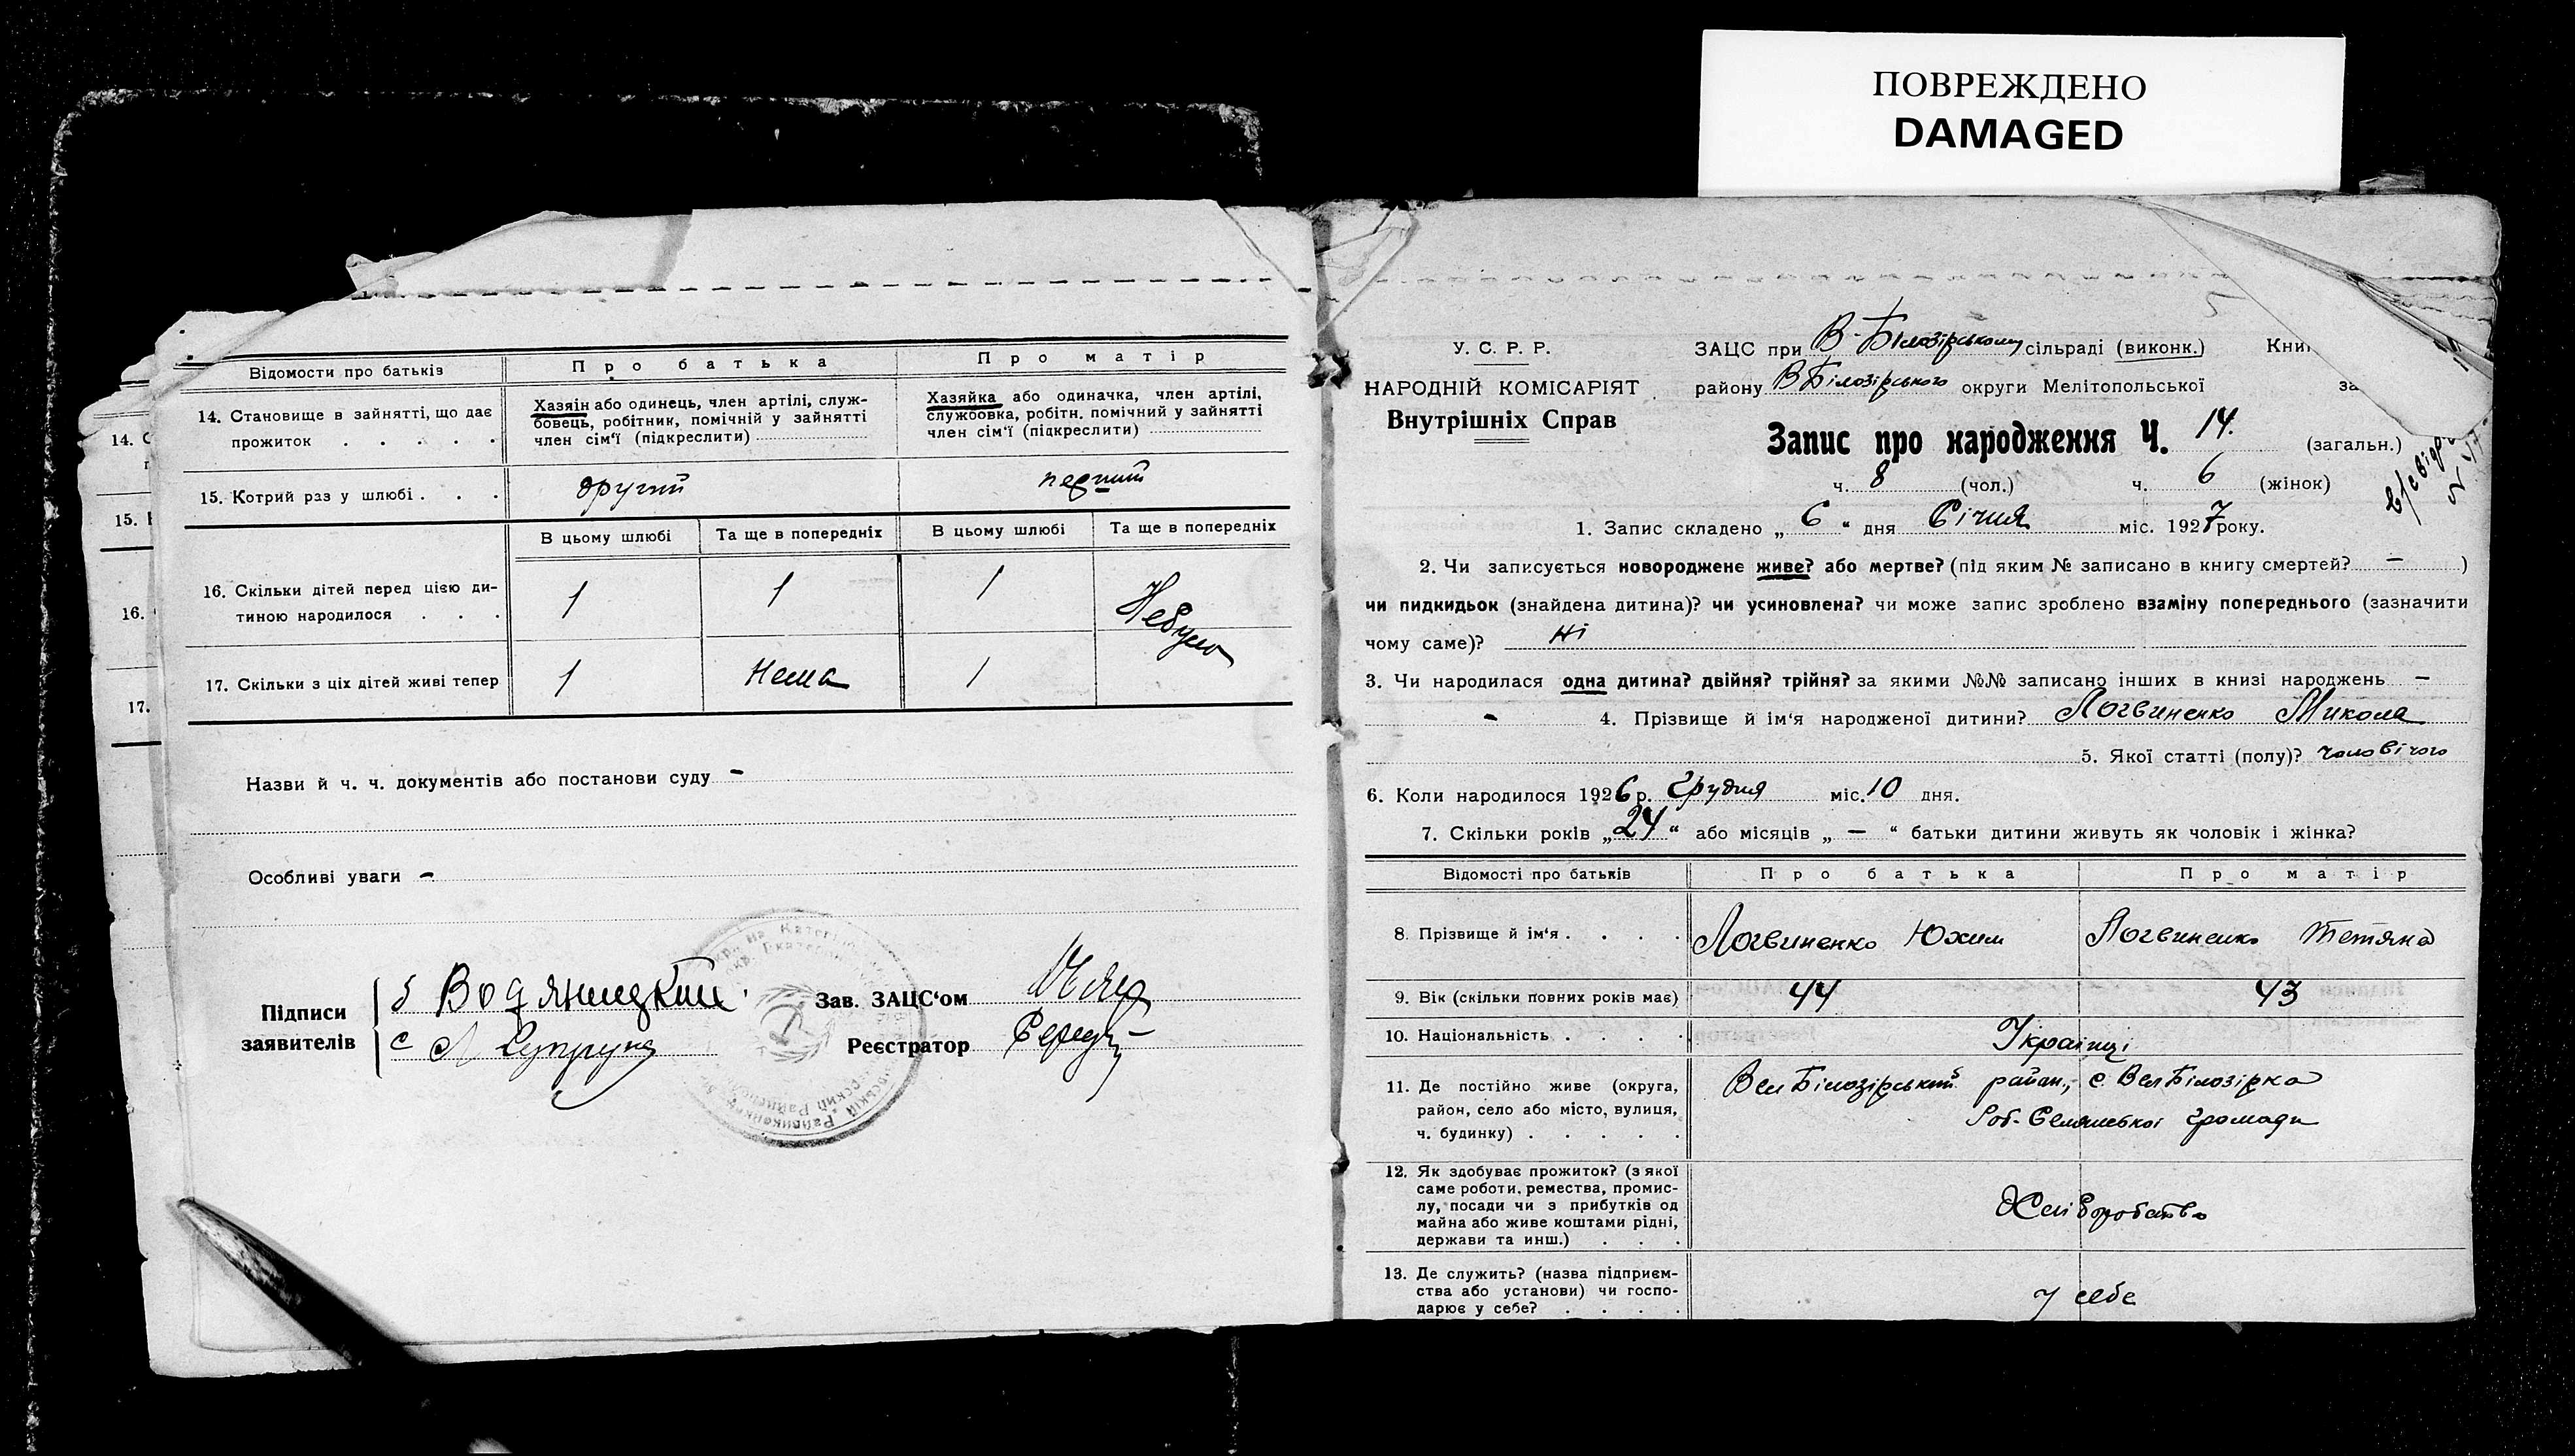 ПОВРЕЖДЕНО
DAMAGED
Відомости про батьків
Про батька
Про матір
14. Становище в зайнятті, що дає
прожиток . . . . .
Хазяін або одинець, член артілі, служ-
бовець, робітник, помічній у зайнятті
член сім'ї (підкреслити)
Хазяйка або одиначка, член артілі,
службовка, робітн. помічний у зайнятті
член сім'ї (підкреслити)
15. Котрий раз у шлюбі . . .
другий
перший
В цьому шлюбі
Та ще в попередніх
В цьому шлюбі
Та ще в попередніх
16. Скільки дітей перед цією ди-
тиною народилося . . .
1
1
1
Небуло
17. Скільки з ціх дітей живі тепер
1
Нема
1
Назви й ч. ч. документів або постанови суду -
Особливі уваги -
Підписи
заявителів
б Водяницкий
с Л Супруна
Зав. ЗАЦС'ом
Реєстратор
14. С
15.
16.
17.
У. С. Р. Р.
НАРОДНІЙ КОМІСАРІЯТ
Внутрішніх Справ
ЗАЦС при В-Білозірському сільраді (виконк.) Кни
району ВБілозірського округи Мелітопольської за
Запис про народження Ч. 14. (загальн.)
ч. 8 (чол.) ч. 6 (жінок)
1. Запис складено „ 6 " дня Січня міс. 1927 року.
2. Чи записується новороджене живе? або мертве? (під яким № записано в книгу смертей? - )
чи пидкидьок (знайдена дитина)? чи усиновлена? чи може запис зроблено взаміну попереднього (зазначити
чому саме)? ні
3. Чи народилася одна дитина? двійня? трійня? за якими №№ записано інших в книзі народжень -
- 4. Прізвище й ім'я народженої дитини? Логвиненко Микола
5. Якої статті (полу)? чоловічого
6. Коли народилося 1926 р. Грудня міс. 10 дня.
7. Скільки років „ 24 " або місяців „ - " батьки дитини живуть як чоловік і жінка?
Відомості про батьків
Про батька
Про матір
8. Прізвище й ім'я . . . .
Логвиненко Юхим
Логвиненко Тетяна
9. Вік (скільки повних років має)
44
43
10. Національність . . . .
Українці
11. Де постійно живе (округа,
район, село або місто, вулиця,
ч. будинку) . . . . .
Вел Білозірський район, с. Вел Білозірка
Роб-Селянської громади
12. Як здобуває прожиток? (з якої
саме роботи, ремества, промис-
лу, посади чи з прибутків од
майна або живе коштами рідні,
держави та инш.) . . .
Хліборобство
13. Де служить? (назва підприєм-
ства або установи) чи госпо-
дарює у себе? . . . .
у себе